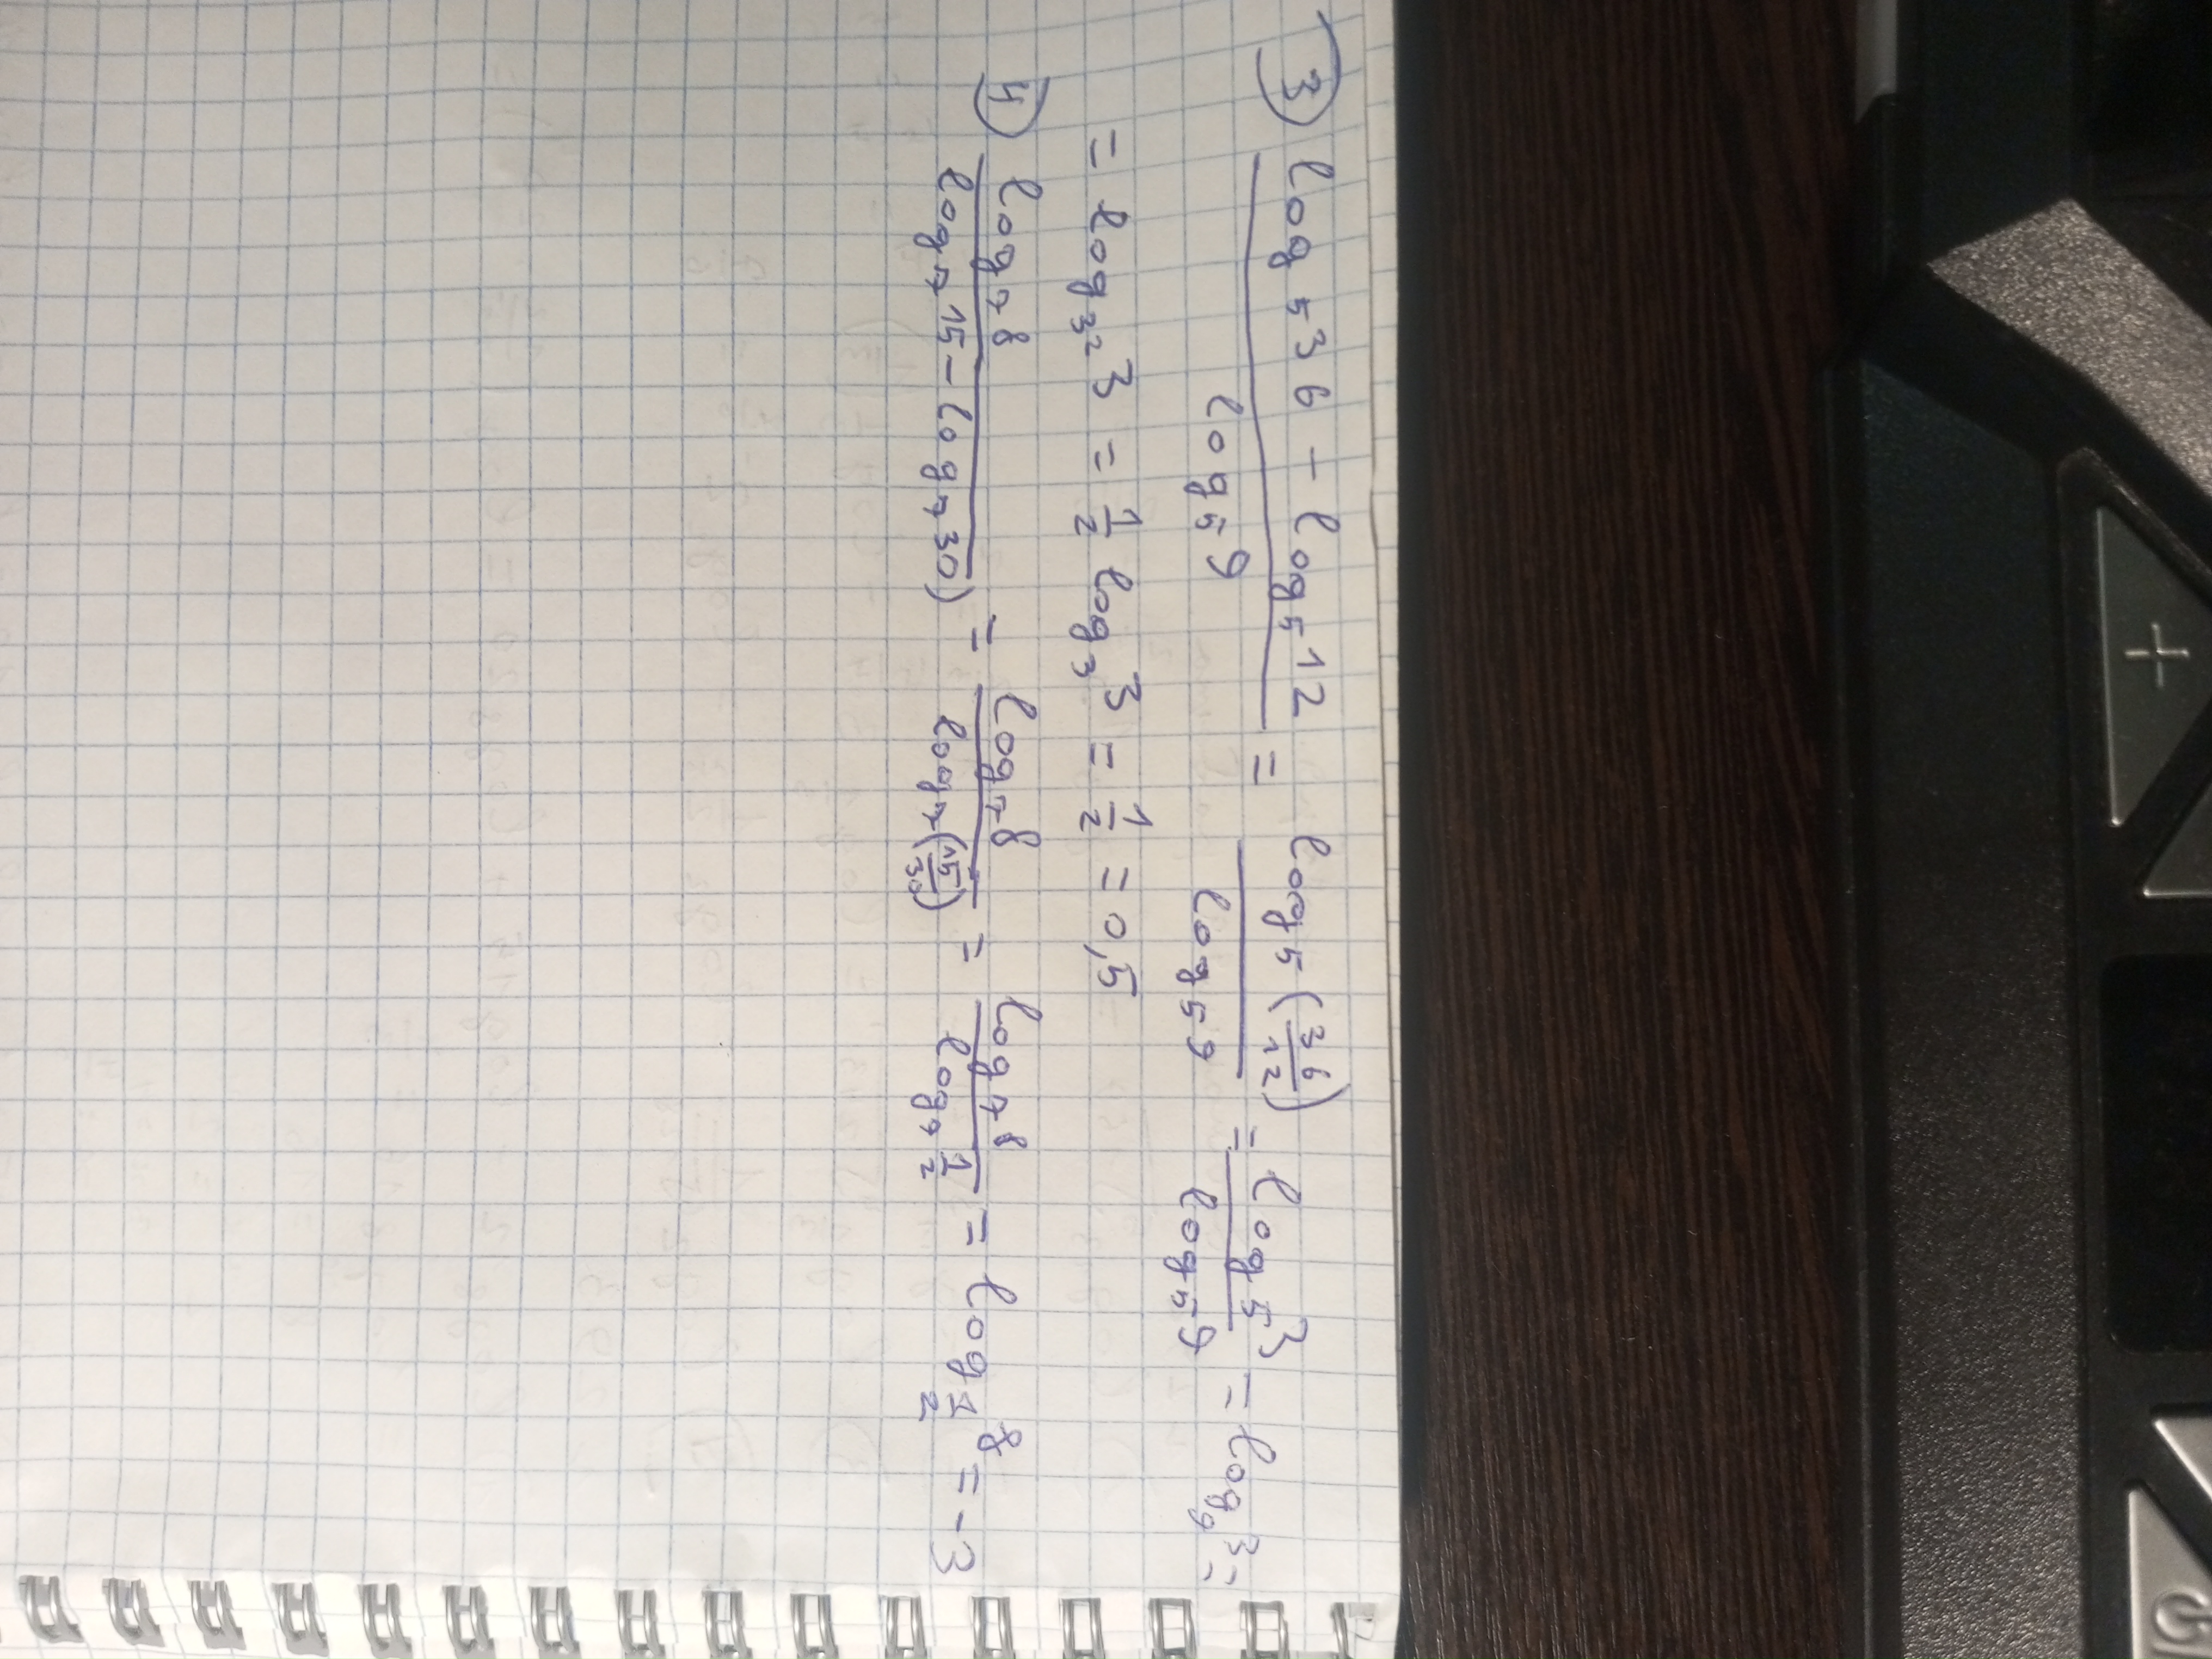 3) (log₅36 - log₅12)/(log₅9) = (log₅(36/12))/(log₅9) = (log₅3)/(log₅9) = log₉3 =
= log₃²3 = 1/2 log₃3 = 1/2 = 0,5
4) (log₇8)/(log₇15 - log₇30) = (log₇8)/(log₇(15/30)) = (log₇8)/(log₇1/2) = log_{1/2}8 = -3
+
5